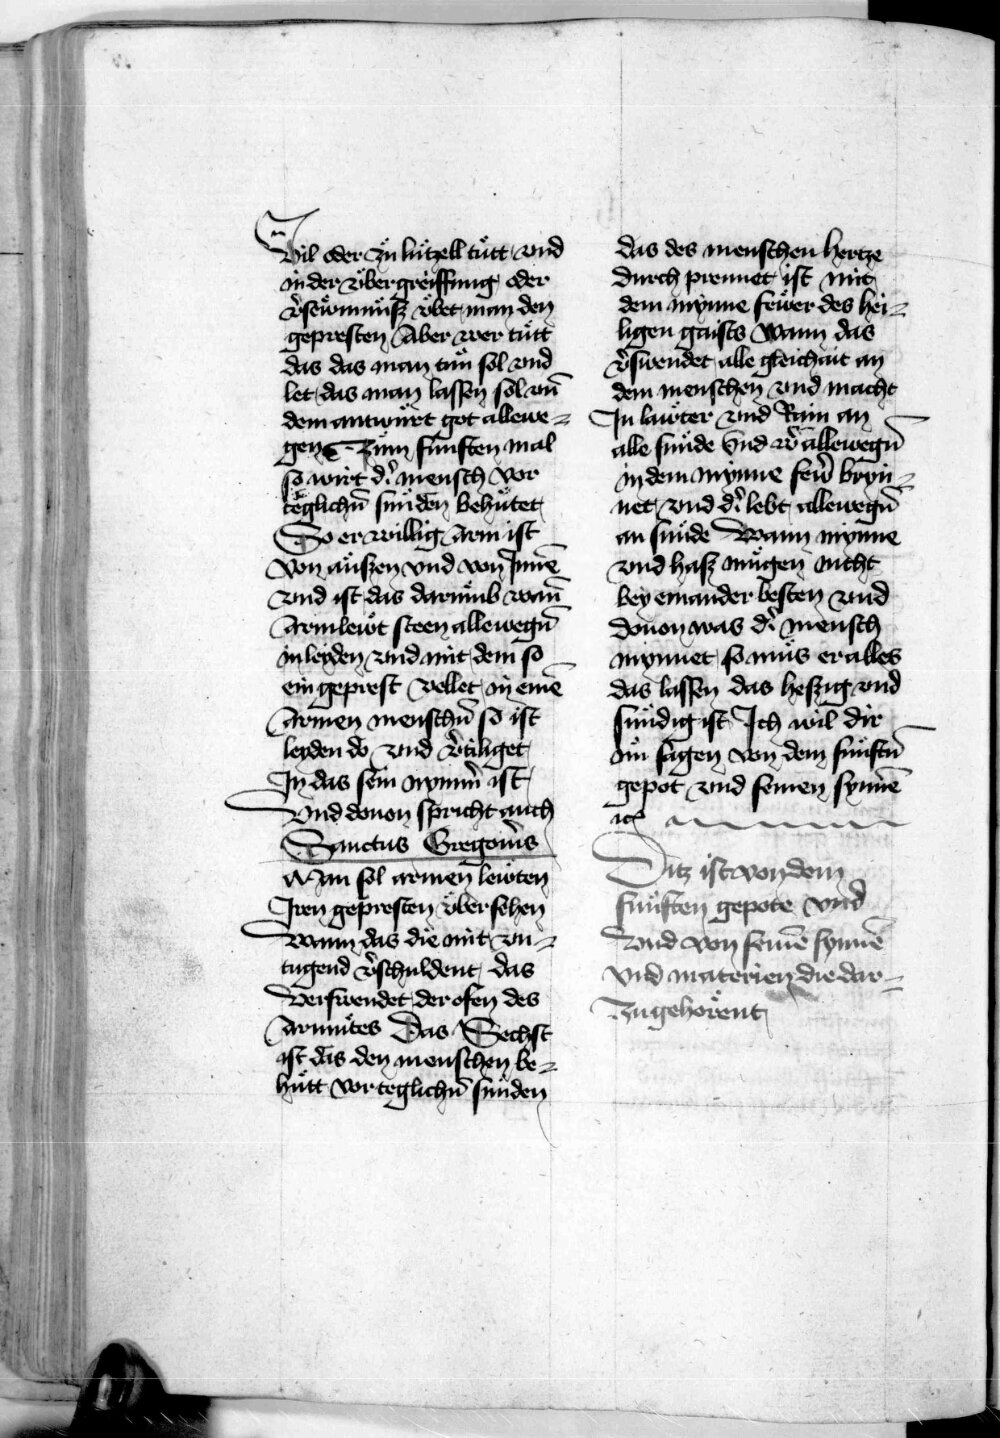 Vil oder zü lützell tütt vnd
in der übergreiffung oder
v̓sewmnüsz übet man den
gepresten Aber wer tütt
das das man tün sol vnd
let das man lassen sol vn̄
dem antwürt got allewe⸗
gen Züm fünften mal
so wirt d̓ mensch vor
teglichn̄ sünden behütet
So er willig arm ist
von aüszen vnd von Inne͂
vnd ist das darümb wan̄
Arm lewt steen allewegn̄
in leyden vnd mit dem so
ein geprest vellet in eine͂
Armen menschn̄ so ist
leyden do vnd v̓tiliget
In das sein nymm̄ ist
Vnd donon spricht auch
Sanctus Gregori9s
Man sol armen lewten
Iren gepresten übersehen
Wann das die mit vn⸗
tugend v̓schuldent das
Verswendet der ofen des
Armütes Das Sechst
ist das den menschen be⸗
hütt vor teglichn̄ sünden
das des menschen hertze
durch prennet ist mit
dem mynne fewer des hei⸗
ligen gaists Wann das
v̓swendet alle gleichait an
dem menschen vnd macht
In lawter vnd Rain an
alle sünde vnd w̓ allewegn̄
in dem mynne few̓ bryn⸗
net vnd d̓ lebt allewegn̄
an sünde Wann mynne
vnd hasz mügen nicht
bey einander besten vnd
donon was d̓ mensch
mynnet so müs er alles
das lassen das heszig vnd
sündig ist Ich wil dir
nü sagen von dem fünftn̄
gepot vnd seinen synne͂
ac̄
Ditz ist von dem
fünften gepote vnd
Vnd von seine͂ synne͂
vnd materien die dar⸗
Zu gehörent